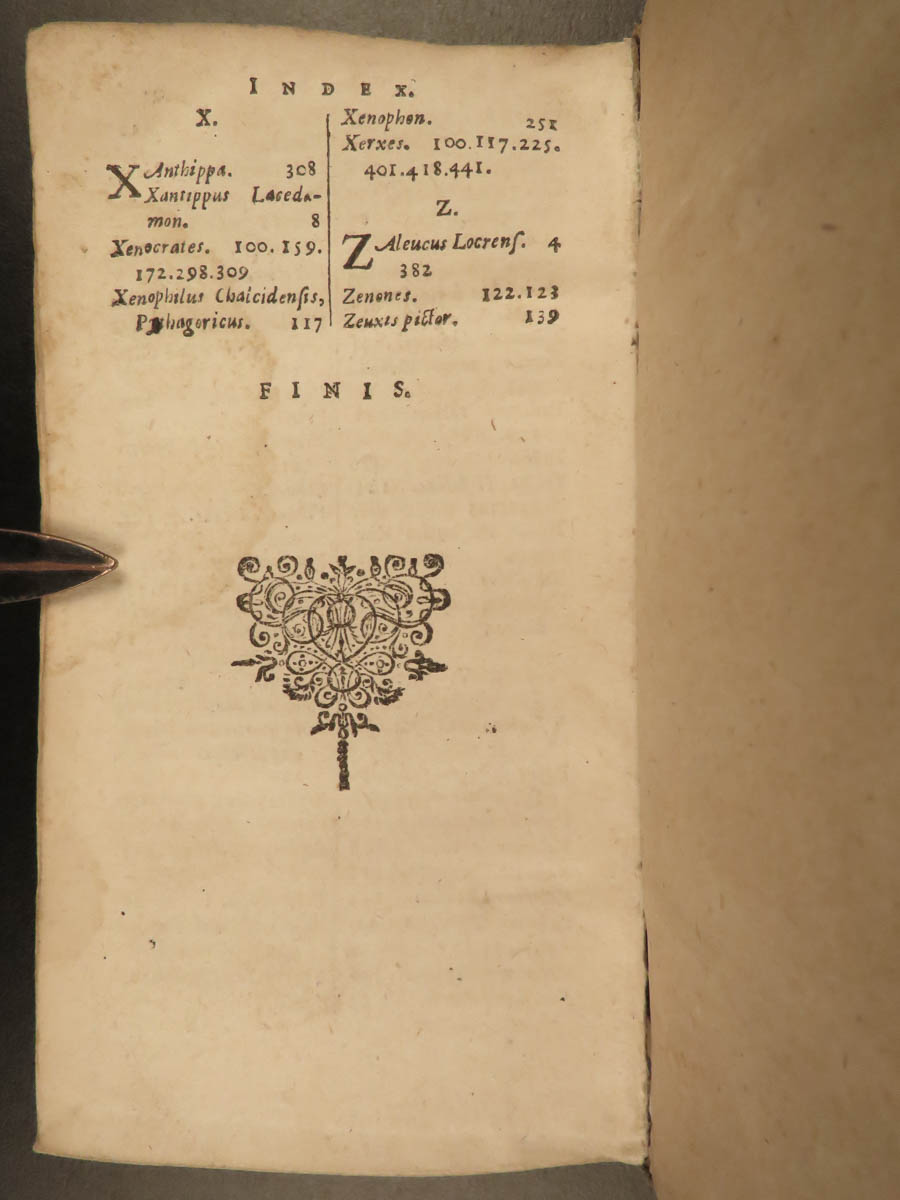 INDEX.
X.
XAnthippa. 308
Xantippus Lacedæ-
mon. 8
Xenocrates. 100.159.
172.298.309
Xenophilus Chalcidensis,
Pythagoricus. 117
Xenophon. 251
Xerxes. 100.117.225.
401.418.441.
Z.
ZAleucus Locrenſ. 4
382
Zenones. 122.123
Zeuxis pictor. 139
FINIS.